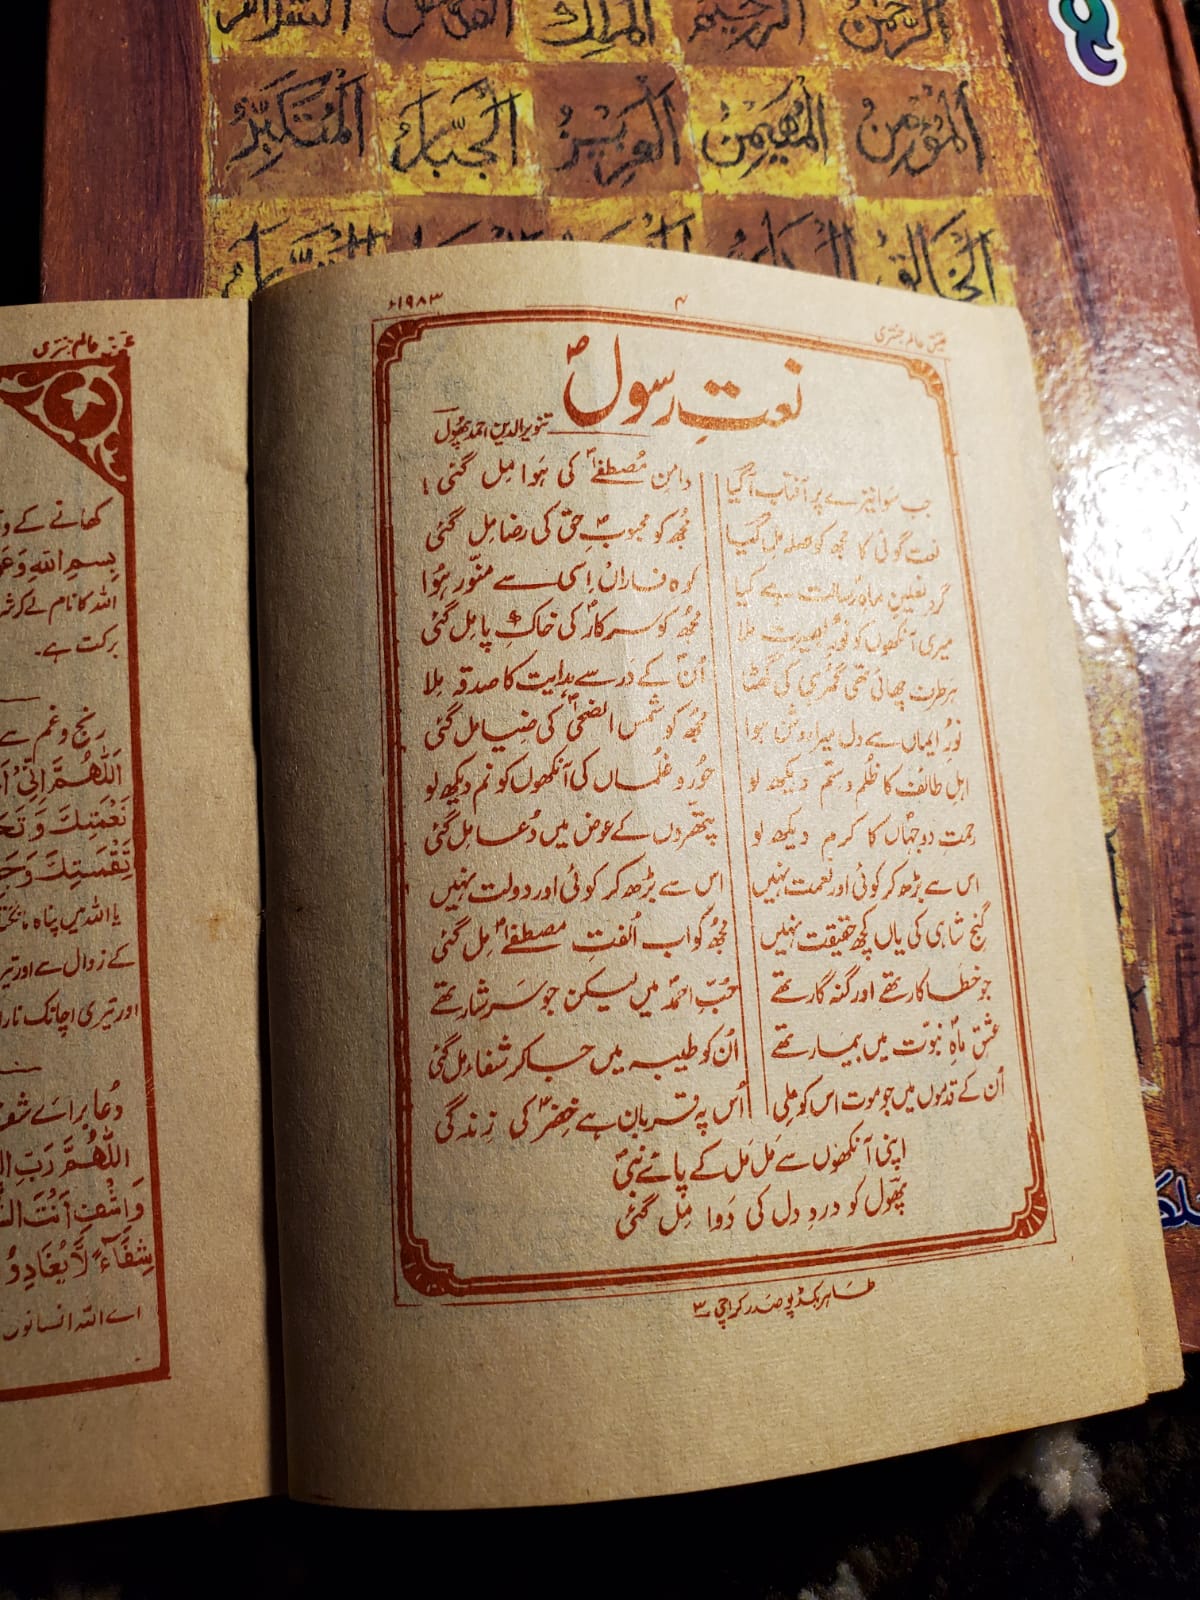 الرحمن الرحيم الملك القدوس
المؤمن المهيمن العزيز الجبار المتكبر
الخالق
عالم جنتری ۴ ۱۹۸۳ء
نعتِ رسولؐ
تنویر الدین احمد پھول
جب سوا نیزے پر آفتاب آگیا دامنِ مصطفےٰؐ کی ہوا مِل گئی!
نعت گوئی کا مجھ کو صلہ مل گیا مجھ کو محبوبِ حقؐ کی رضا مِل گئی
گردِ نعلینِ ماہِ رسالت ہے کیا کوہِ فاراں اِسی سے منوّر ہوا
میری آنکھوں کو نورِ بصیرت ملا مجھ کو سرکارؐ کی خاکِ پا مِل گئی
ہر طرف چھائی تھی گمرہی کی گھٹا اُنؐ کے دَر سے ہدایت کا صدقہ مِلا
نورِ ایماں سے دل میرا روشن ہوا مجھ کو شمس الضحیٰؐ کی ضیا مل گئی
اہلِ طائف کا ظلم و ستم دیکھ لو حُور و غلماں کی آنکھوں کو نم دیکھ لو
رحمتِ دو جہاںؐ کا کرم دیکھ لو پتھروں کے عوض میں دُعا مِل گئی
اس سے بڑھ کر کوئی اور نعمت نہیں اس سے بڑھ کر کوئی اور دولت نہیں
گنجِ شاہی کی یاں کچھ حقیقت نہیں مجھ کو اب اُلفتِ مصطفےٰؐ مِل گئی
جو خطا کار تھے اور گنہ گار تھے حُبِّ احمدؐ میں لیکن جو سَرشار تھے
عشقِ ماہِ نبوّت میں بیمار تھے اُن کو طیبہ میں جا کر شفاء مل گئی
اُن کے قدموں میں جو موت اس کو مِلی اُس پہ قربان ہے خِضرؑ کی زندگی
اپنی آنکھوں سے مَل مَل کے پائے نبیؐ
پھول کو دردِ دل کی دَوا مِل گئی
طاہر بکڈپو صدر کراچی ۳
عالم جنتری
کھانے کے
بِسمِ اللّٰهِ وَعَ
اللہ کا نام لے کر
برکت ہے۔
رنج و غم سے
اَللّٰهُمَّ اِنِّیْ
نِعْمَتِكَ وَتَحَ
نِقْمَتِكَ وَجَ
یا اللہ میں پناہ مانگتا
کے زوال سے اور تیر
اور تیری اچانک
دُعا برائے شفا
اَللّٰهُمَّ رَبَّ
وَاشْفِ اَنْتَ
شِفَآءً لَّا یُغَادِرُ
اے اللہ انسانوں